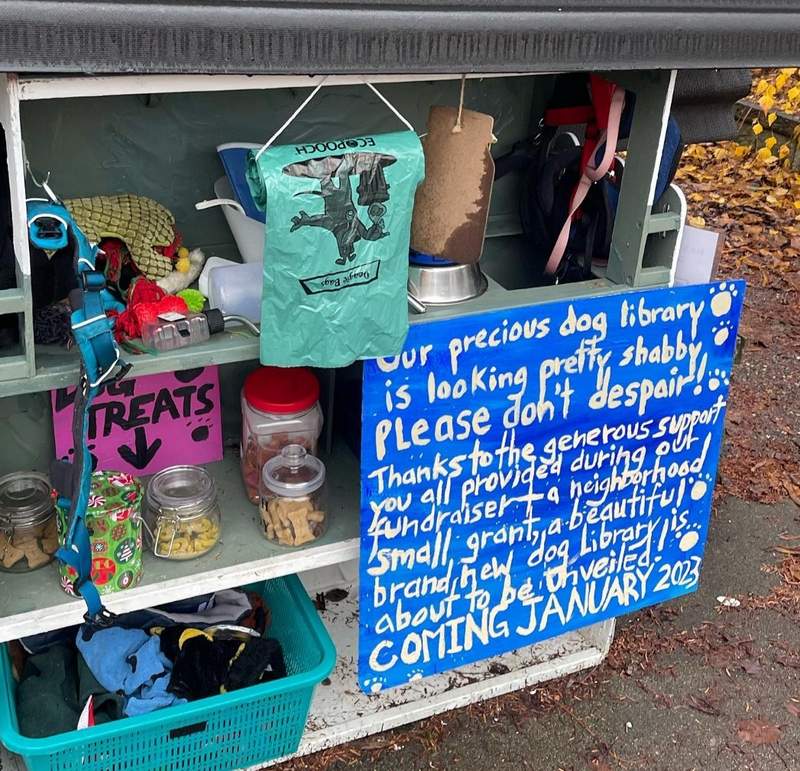 ECOPOOCH
Doggie Bags
DOG
TREATS
Our precious dog library
is looking pretty shabby
PLEASE don't despair!
Thanks to the generous support
you all provided during our
fundraiser + a neighborhood
small grant, a beautiful
brand new dog library is
about to be unveiled!
COMING JANUARY 2023